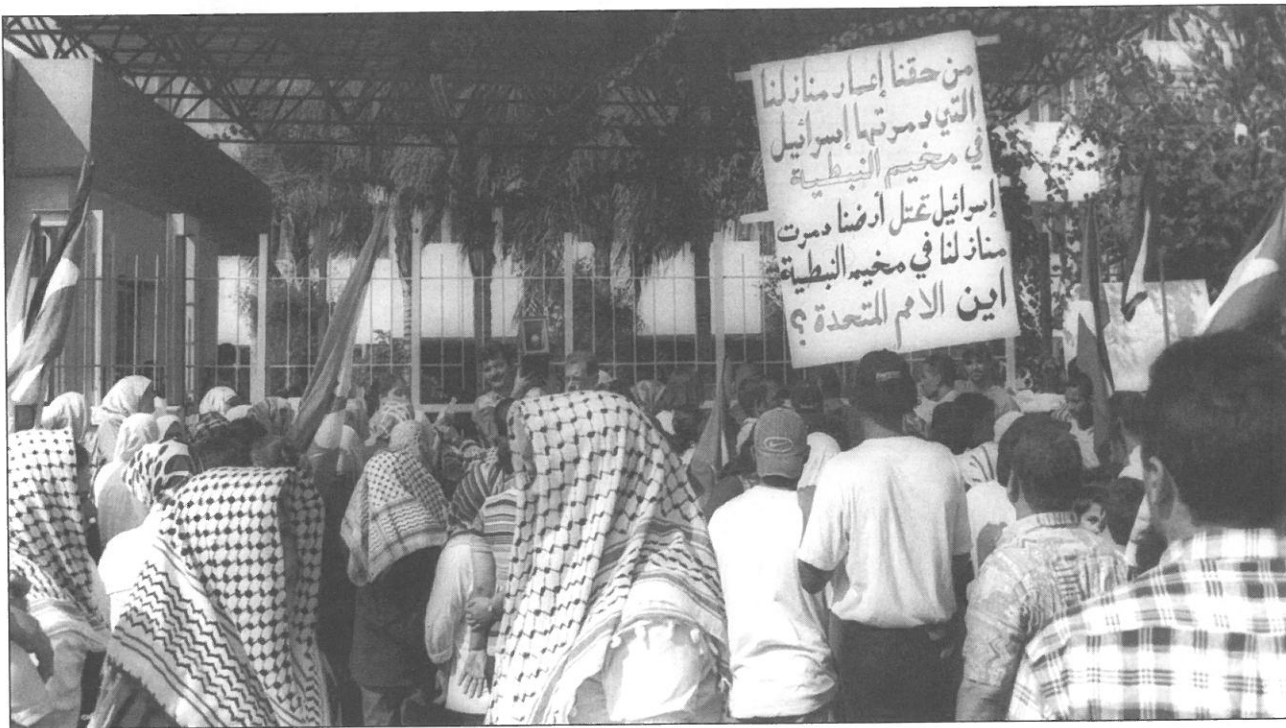 من حقنا إعمار منازلنا
التي دمرتها إسرائيل
في مخيم النبطية
إسرائيل تحتل أرضنا دمرت
منازلنا في مخيم النبطية
اين الامم المتحدة ؟